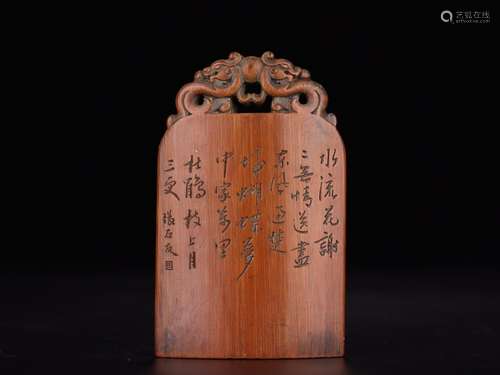 水流花謝
二無情送盡
東風過楚
城蝴蝶夢
中家萬里
杜鵑枝上月
三更
艺狐在线
artfoxlive.com